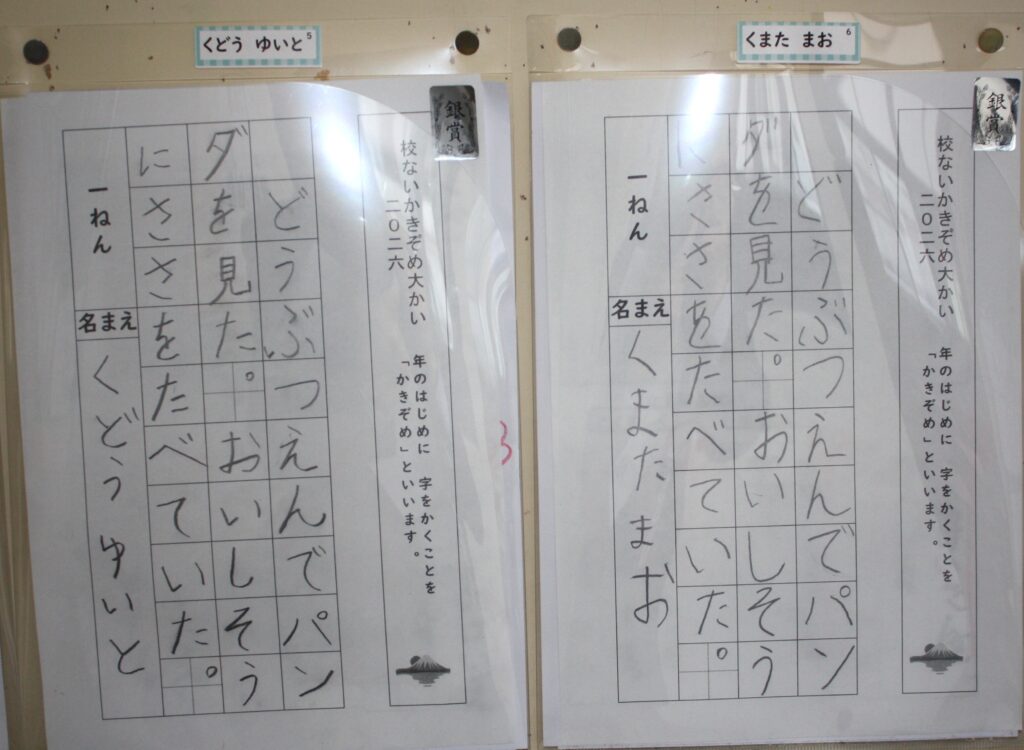 くどう ゆいと 5
銀賞
校ないかきぞめ大かい
二〇二六
年のはじめに 字をかくことを
「かきぞめ」といいます。
どうぶつえんでパン
ダを見た。おいしそう
にささをたべていた。
一ねん
名まえ
くどう ゆいと
3
くまた まお 6
銀賞
校ないかきぞめ大かい
二〇二六
年のはじめに 字をかくことを
「かきぞめ」といいます。
どうぶつえんでパン
ダを見た。おいしそう
にささをたべていた。
一ねん
名まえ
くまた まお